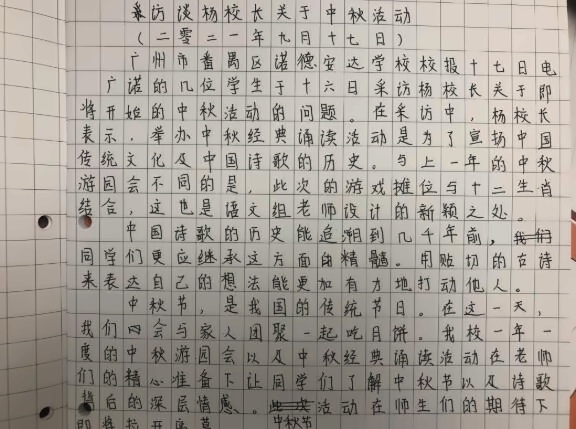 采访谈杨校长关于中秋活动
（二零二一年九月十七日）
广州市番禺区诺德安达学校校报十七日电
广诺的几位学生于十六日采访杨校长关于即
将开始的中秋活动的问题。在采访中，杨校长
表示，举办中秋经典诵读活动是为了宣扬中国
传统文化及中国诗歌的历史。与上一年的中秋
游园会不同的是，此次的游戏摊位与十二生肖
结合，这也是语文组老师设计的新颖之处。
中国诗歌的历史能追溯到几千年前，我们
同学们更应继承这方面的精髓。用贴切的古诗
来表达自己的想法能更加有力地打动他人。
中秋节，是我国的传统节日。在这一天，
我们会与家人团聚一起吃月饼。我校一年一
度的中秋游园会以及中秋经典诵读活动在老师
们的精心准备下让同学们了解中秋节以及诗歌
背后的深层情感。活动在师生们的期待下
中秋节
即将拉开序幕